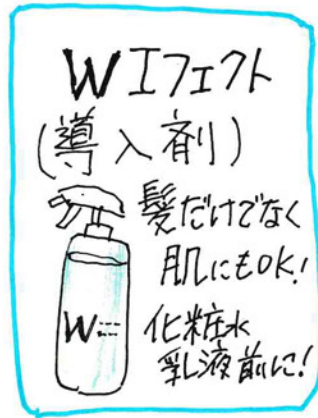 Wエフェクト
(導入剤)
髪だけでなく
肌にもOK!
W
化粧水
乳液前に!